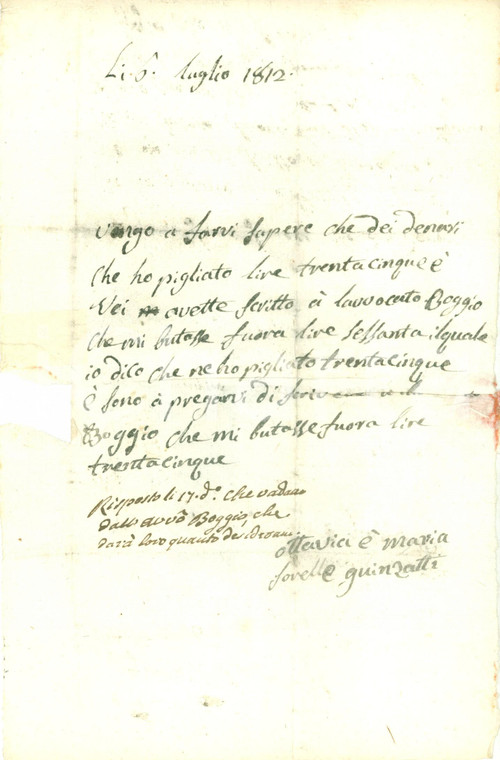 Li. 6. luglio 1812.
vengo a farvi sapere che dei denari
che ho pigliato lire trentacinque è
Vei avette scritto à lavvocato Boggio
che mi butasse fuora lire sessanta ilquale
io dico che ne ho pigliato trentacinque
è sono à pregarvi di
Boggio che mi butasse fuora lire
trentacinque
Risposto li 17. do. che vadano
dall' avvo Boggio, che
darà loro quanto desiderano
ottavia è maria
sorelle guinzatti